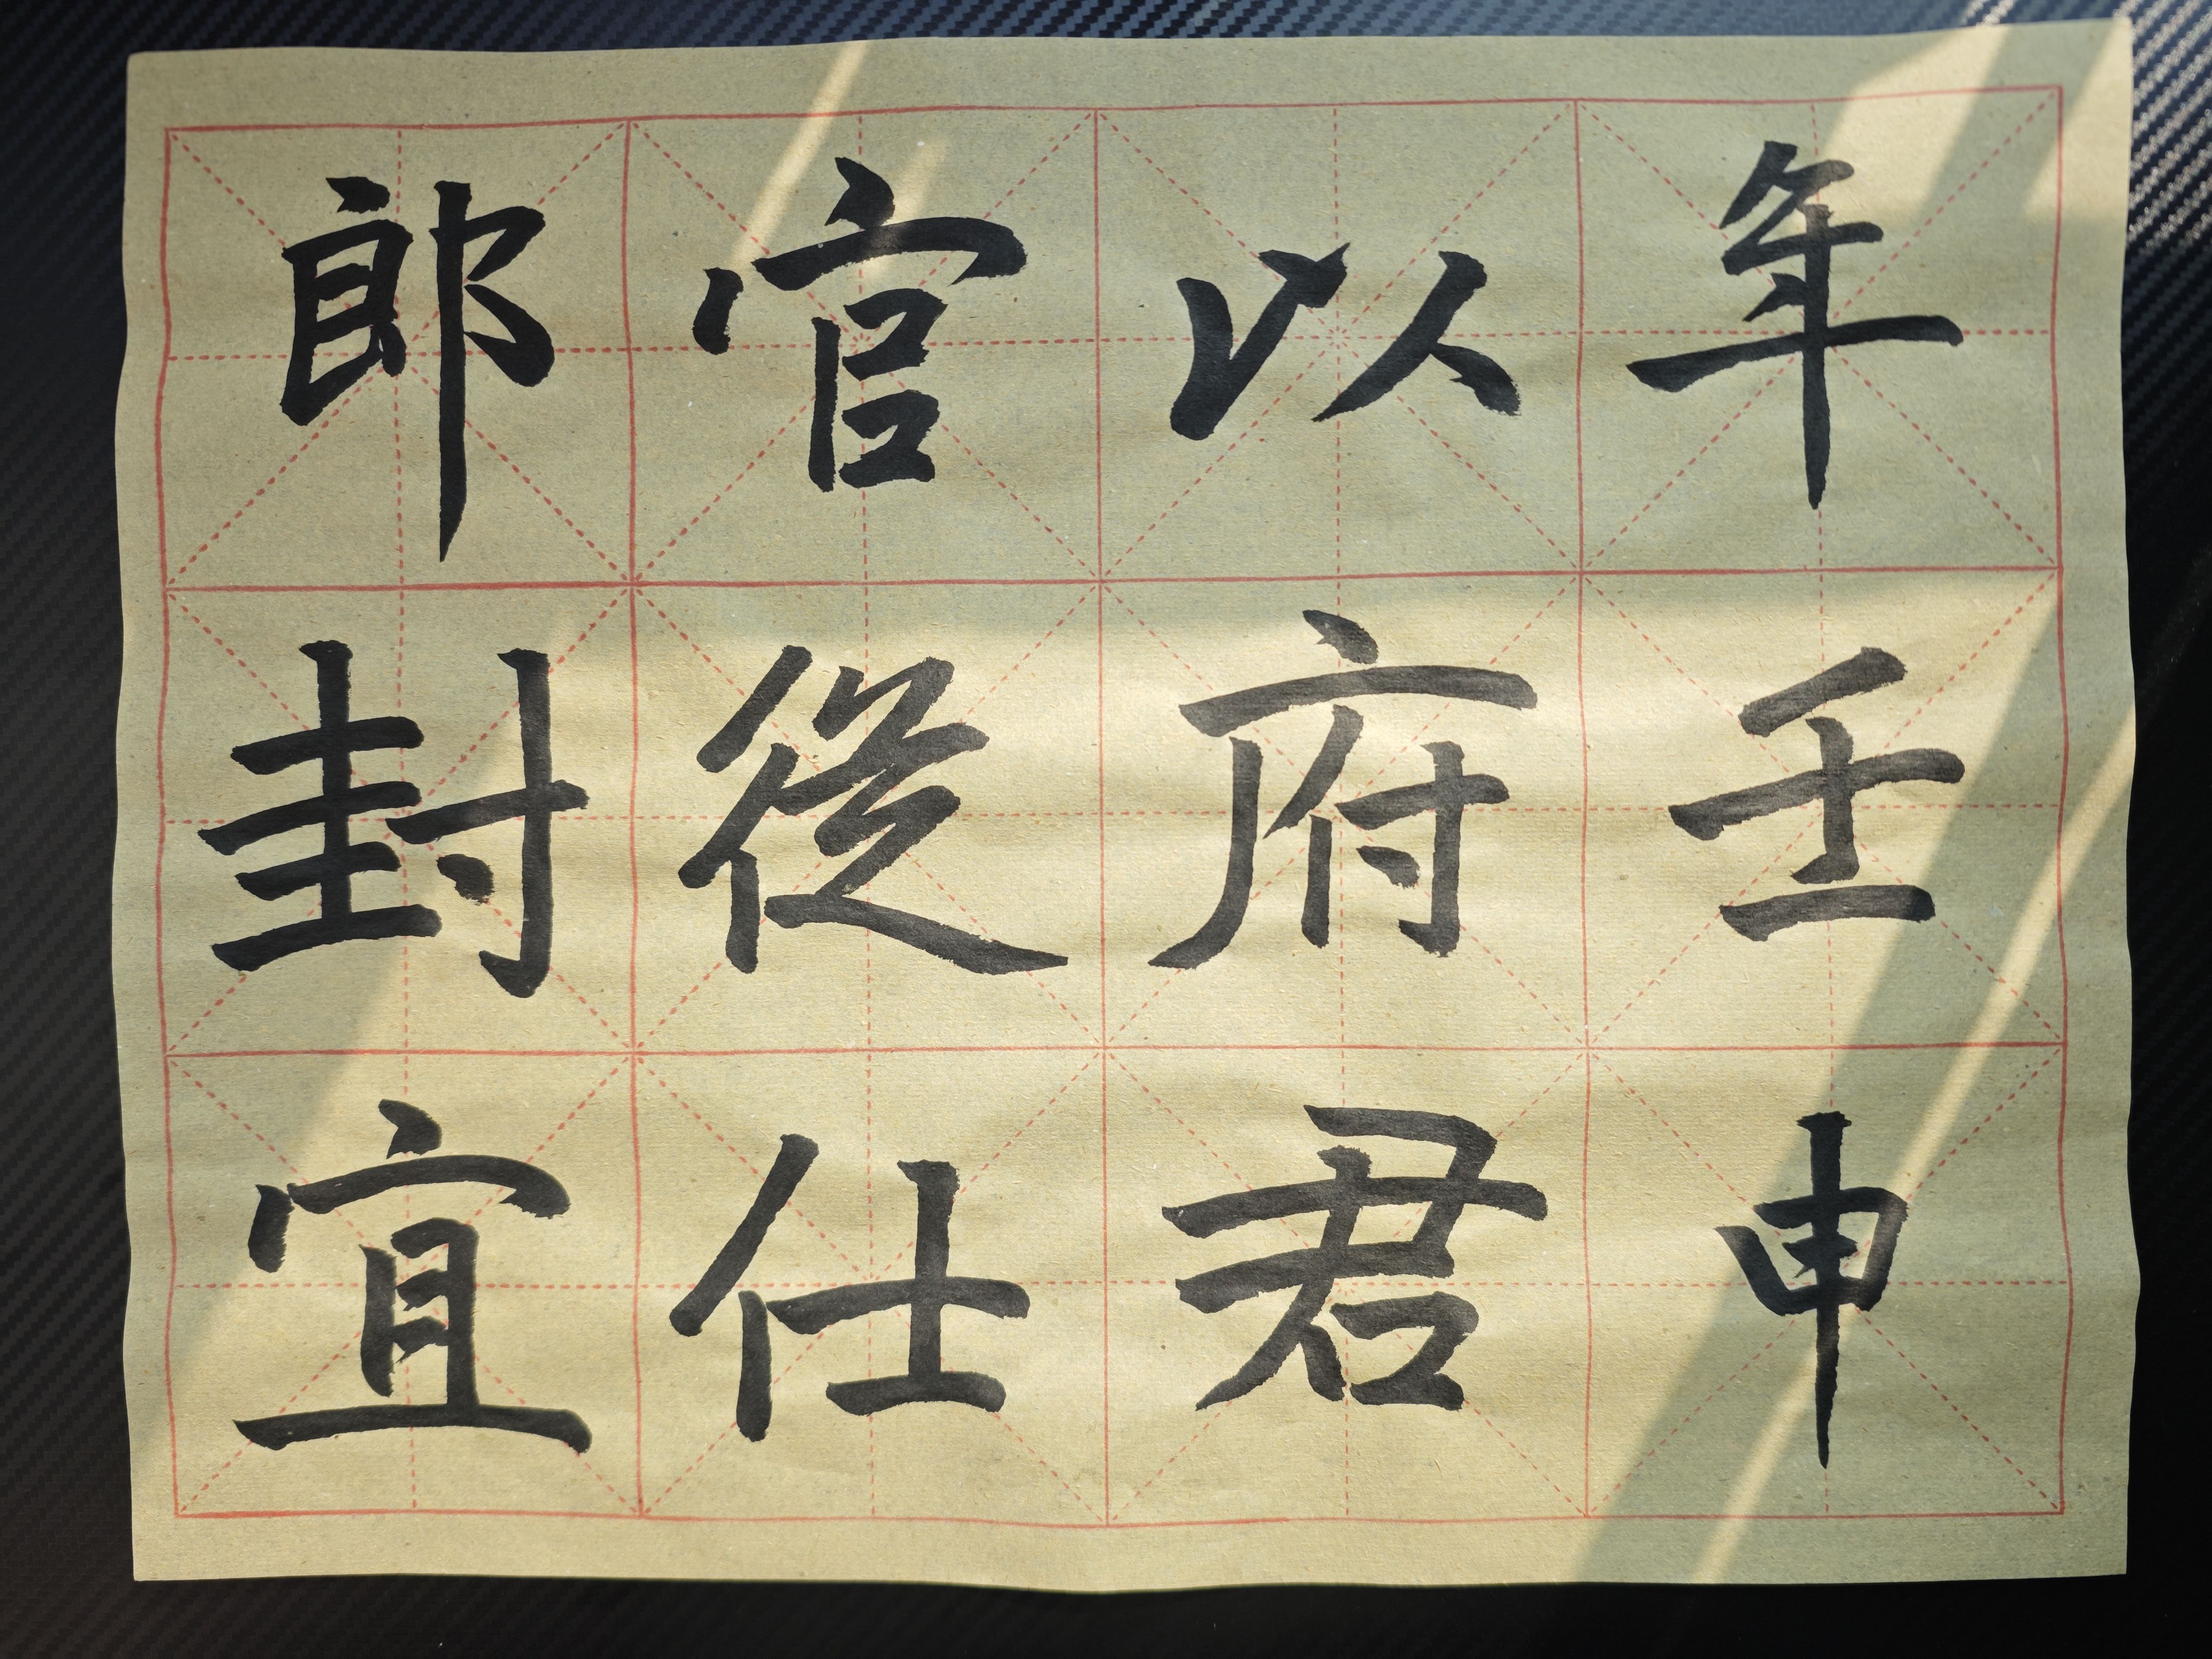 年壬申
以府君
官從仕
郎封宜